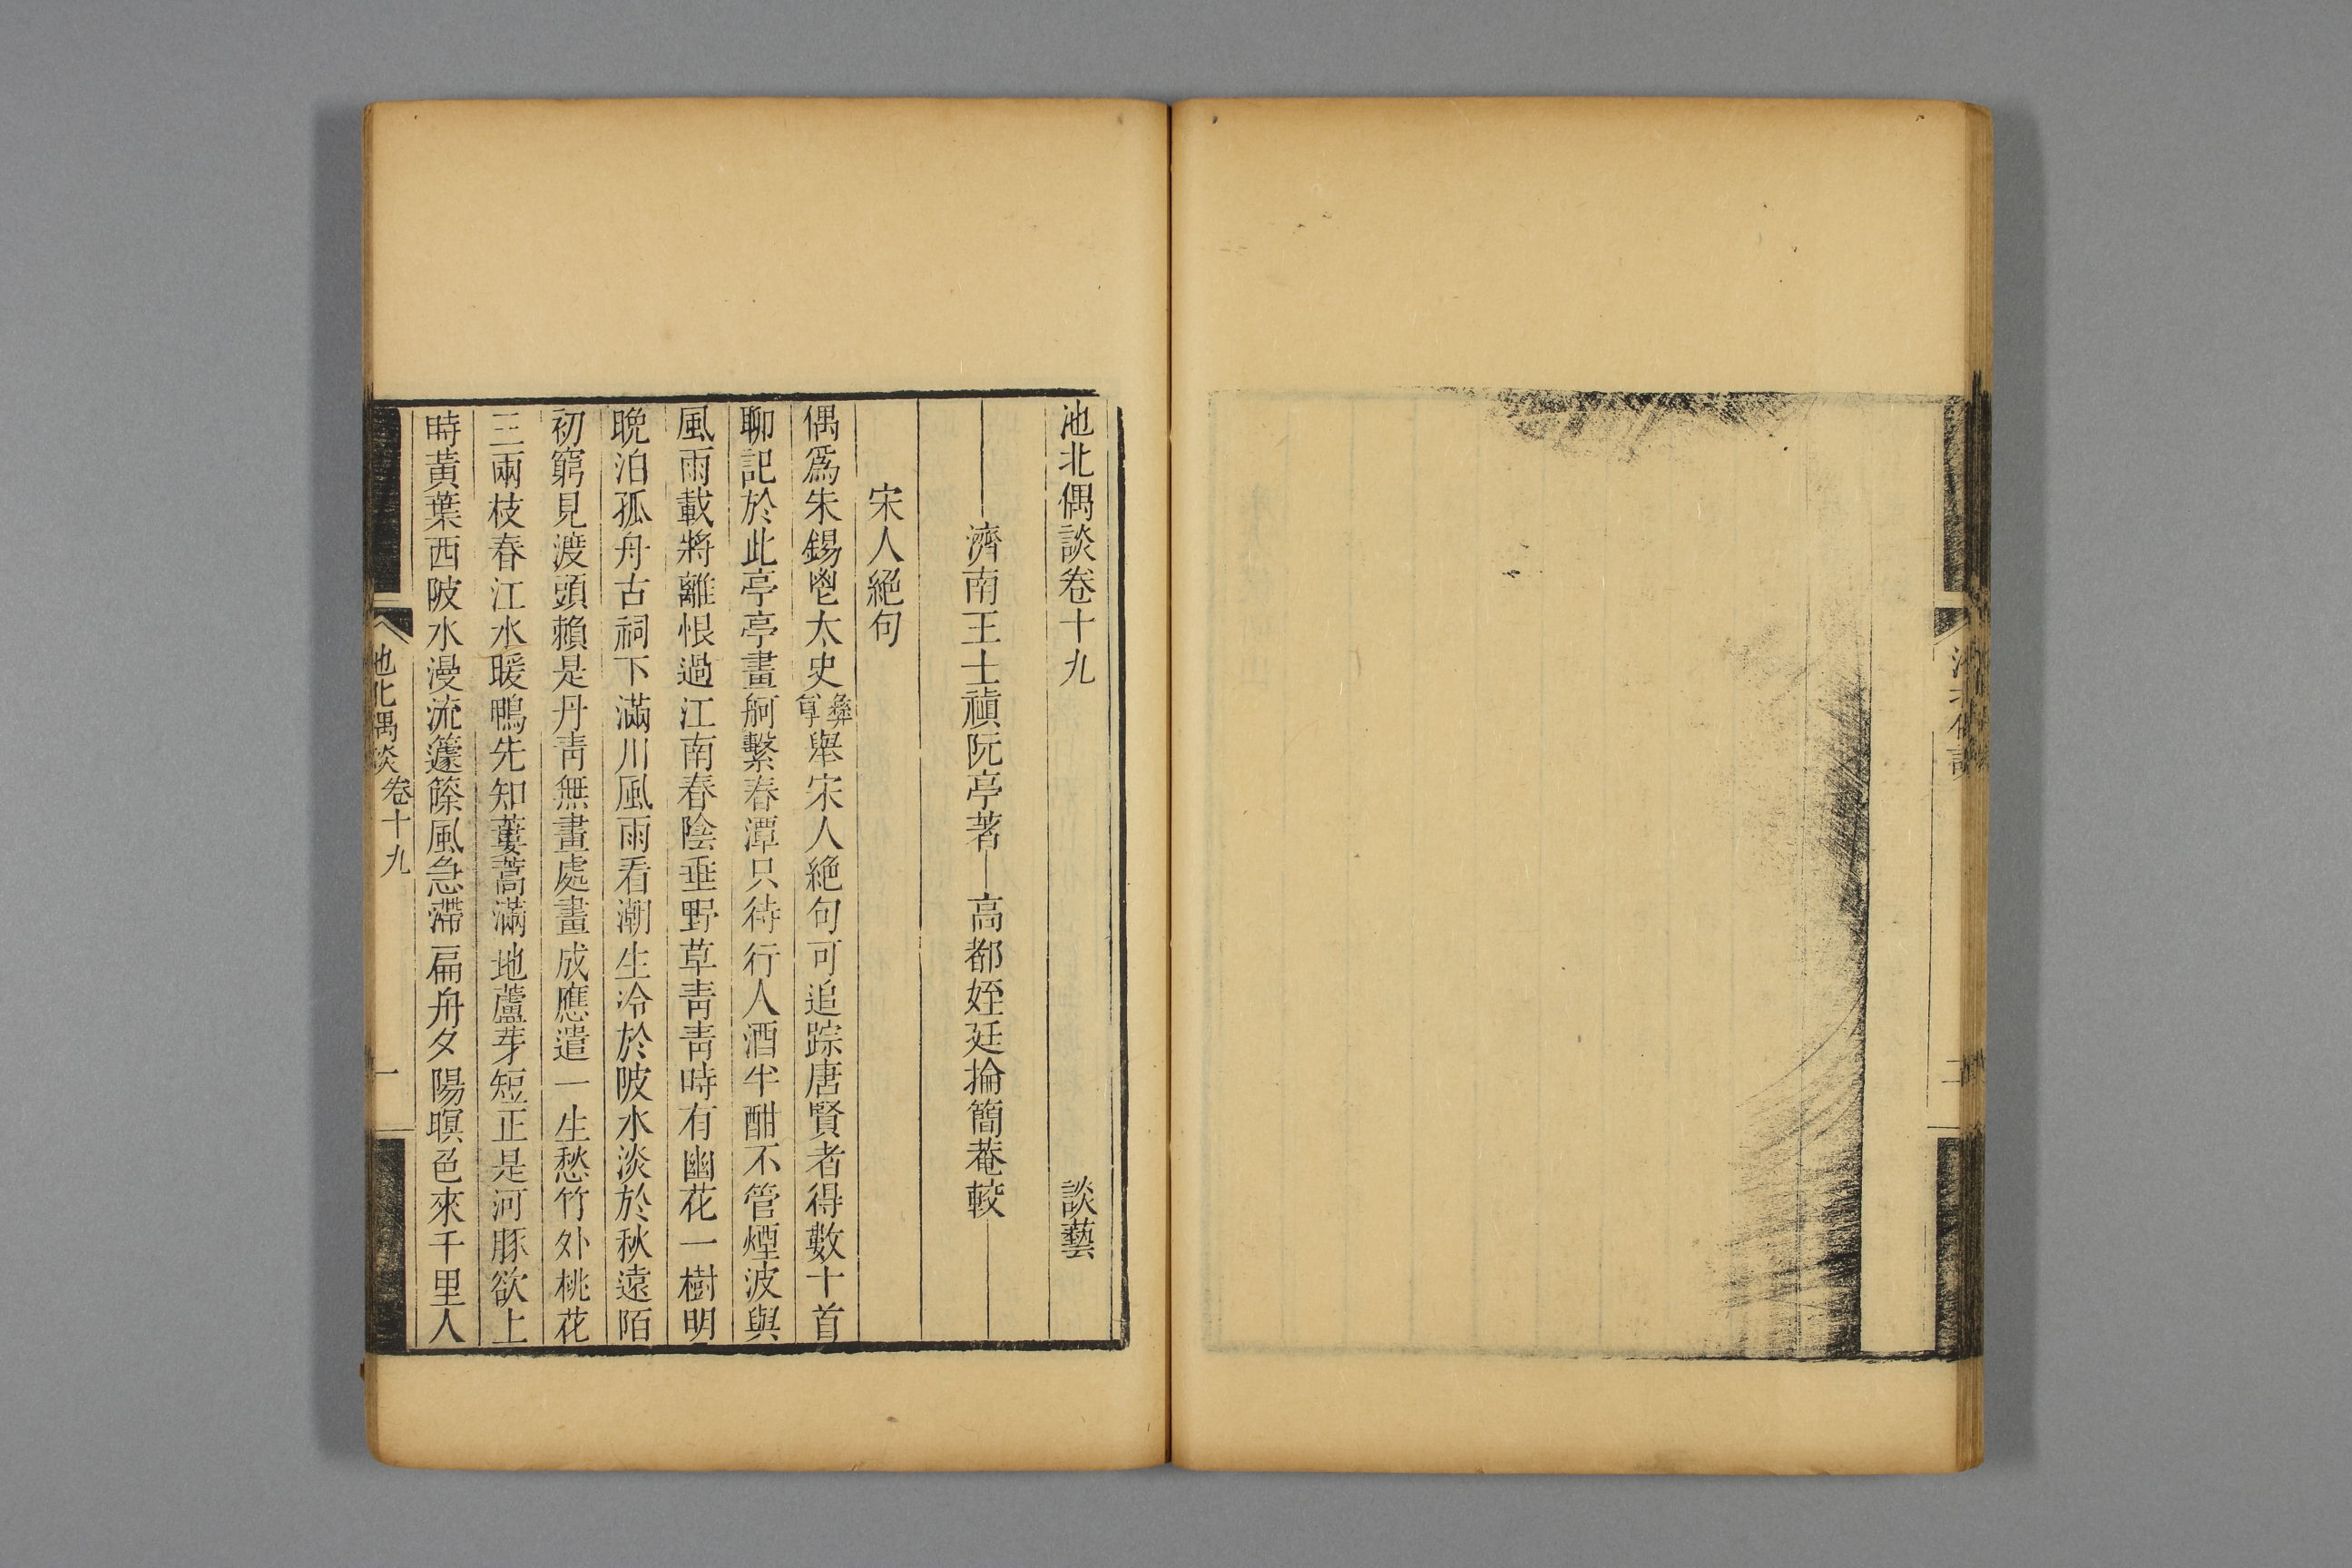 池北偶談卷十九　談藝
濟南王士禛阮亭著　高都姪廷掄簡菴較
宋人絕句
偶爲朱錫鬯太史彝尊舉宋人絕句可追踪唐賢者得數十首
聊記於此亭亭畫舸繫春潭只待行人酒半酣不管煙波與
風雨載將離恨過江南春陰垂野草靑靑時有幽花一樹明
晚泊孤舟古祠下滿川風雨看潮生冷於陂水淡於秋遠陌
初窮見渡頭賴是丹靑無畫處畫成應遣一生愁竹外桃花
三兩枝春江水暖鴨先知蔞蒿滿地蘆芽短正是河豚欲上
時黃葉西陂水漫流籧篨風急滯扁舟夕陽暝色來千里人
池北偶談　卷十九　一